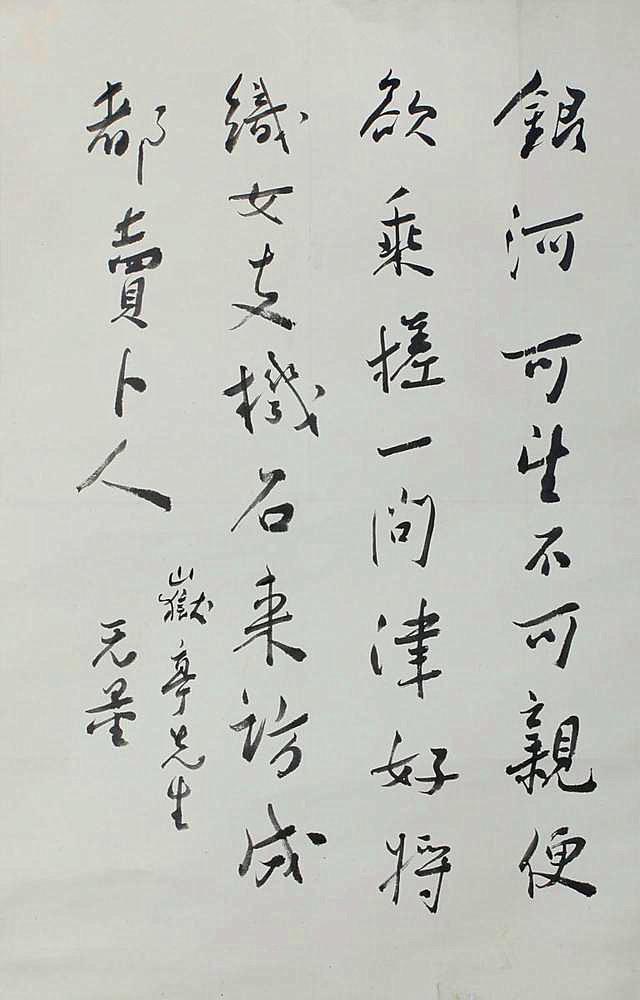 銀河可望不可親便
欲乘槎一問津好将
織女支機石来訪成
都賣卜人
嶽亭先生
无量